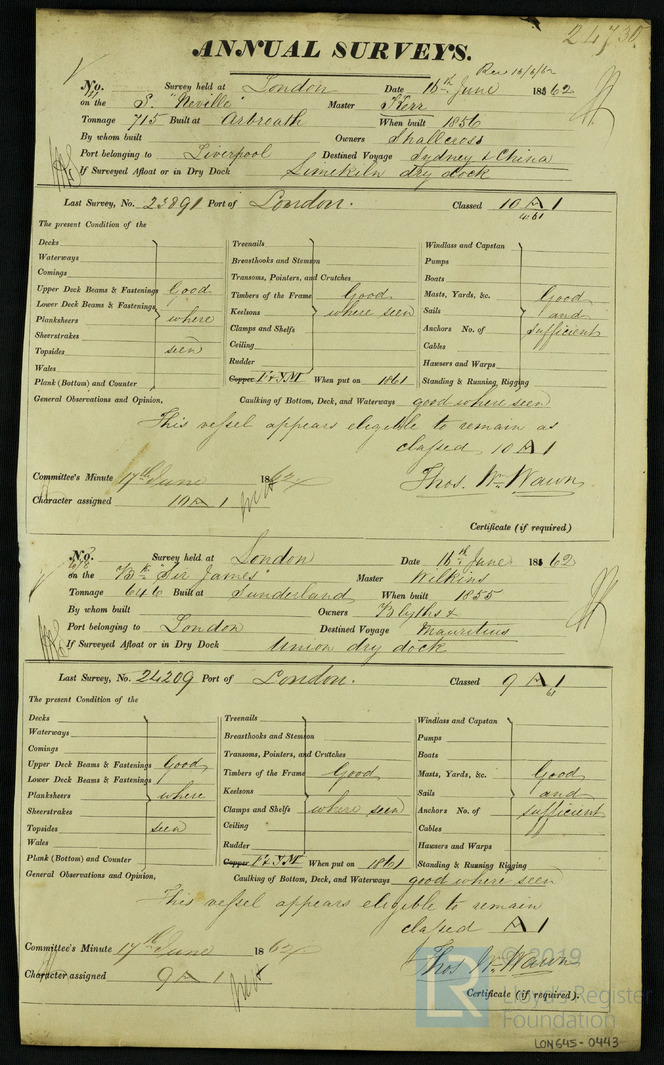 24730
ANNUAL SURVEYS.
Rec 16/6/62
No. Survey held at London Date 16th June 1862
on the S. "Neville" Master Kerr
Tonnage 715 Built at Arbroath When built 1856
By whom built Owners Shallcross
Port belonging to Liverpool Destined Voyage Sydney & China
If Surveyed Afloat or in Dry Dock Limekiln dry dock
Last Survey, No. 23891 Port of London. Classed 10 A 1
4.61
The present Condition of the
Decks Treenails Windlass and Capstan
Waterways Breasthooks and Stemson Pumps
Comings Transoms, Pointers, and Crutches Boats
Upper Deck Beams & Fastenings Good Timbers of the Frame Good Masts, Yards, &c. Good
Lower Deck Beams & Fastenings Keelsons where seen Sails and
Planksheers where Clamps and Shelfs Anchors No. of sufficient
Sheerstrakes Ceiling Cables
Topsides seen Rudder Hawsers and Warps
Wales Copper F & YM When put on 1861 Standing & Running Rigging
Plank (Bottom) and Counter
General Observations and Opinion, Caulking of Bottom, Deck, and Waterways good where seen
This vessel appears eligible to remain as
classed 10 A 1
Committee's Minute 17th June 1862 Thos. Wm Wawn
Character assigned 10 A 1
Certificate (if required)
No. Survey held at London Date 16th June 1862
on the Bk "Sir James" Master Wilkins
Tonnage 646 Built at Sunderland When built 1855
By whom built Owners Blyths &
Port belonging to London Destined Voyage Mauritius
If Surveyed Afloat or in Dry Dock Union dry dock
Last Survey, No. 24209 Port of London. Classed 9 A 1
61
The present Condition of the
Decks Treenails Windlass and Capstan
Waterways Breasthooks and Stemson Pumps
Comings Transoms, Pointers, and Crutches Boats
Upper Deck Beams & Fastenings Good Timbers of the Frame Good Masts, Yards, &c. Good
Lower Deck Beams & Fastenings Keelsons Sails and
Planksheers where Clamps and Shelfs where seen Anchors No. of sufficient
Sheerstrakes Ceiling Cables
Topsides seen Rudder Hawsers and Warps
Wales Copper F & YM When put on 1861 Standing & Running Rigging
Plank (Bottom) and Counter
General Observations and Opinion, Caulking of Bottom, Deck, and Waterways good where seen
This vessel appears eligible to remain
classed A 1
Committee's Minute 17th June 1862 Thos Wm Wawn
Character assigned 9 A 1
Certificate (if required).
LR © 2019
Lloyd's Register
Foundation
LON645-0443